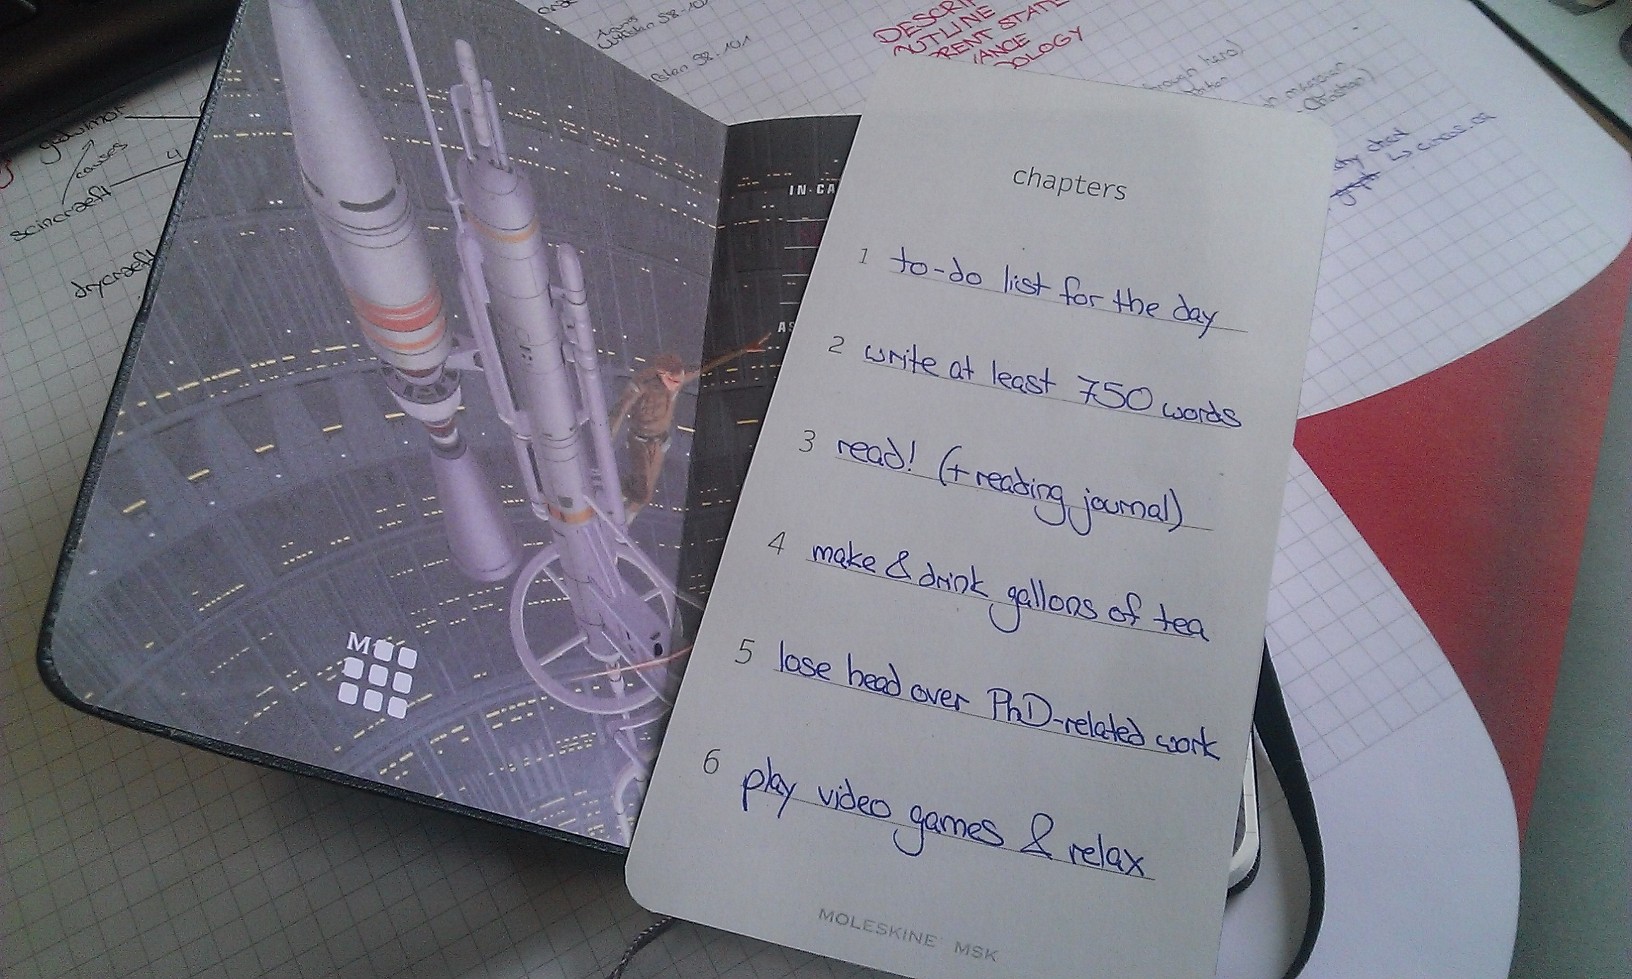 chapters
1 to-do list for the day
2 write at least 750 words
3 read! (+ reading journal)
4 make & drink gallons of tea
5 lose head over PhD-related work
6 play video games & relax
MOLESKINE MSK
IN-CA
AS
M
58-101
58-101
DESCRI
OUTLINE
RENT STATE
ANCE
DOLOGY
causes
4
scincraeft
drycraeft